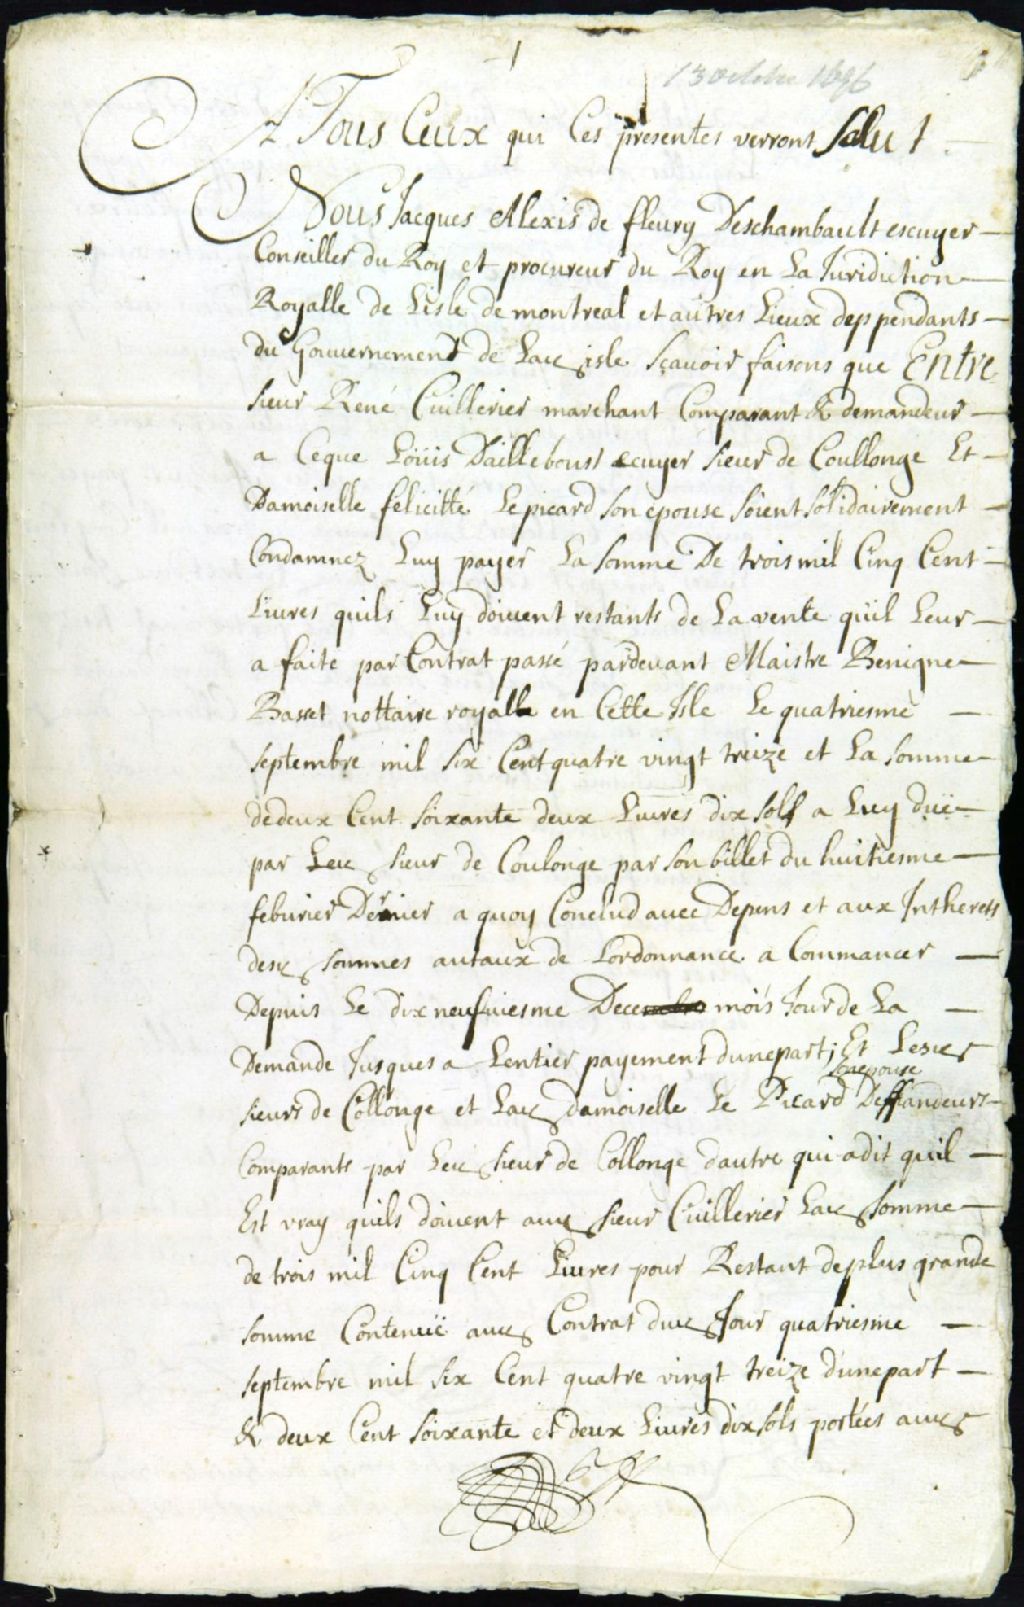 1
13 octobre 1696
A Tous Ceux qui Ces presentes verront Salut
Nous Jacques Alexis de fleury Deschambault escuyer
Conseiller du Roy et procureur du Roy en La Juridiction
Royalle de Lisle de montreal et autres Lieux deppendants
du Gouvernement de Lad isle sçavoir faisons que Entre
sieur René Cuillerier marchant Comparant & demandeur
a Ceque Loüis Dailleboust ecuyer sieur de Coullonge Et
Damoiselle felicitté Lepicard son epouse soient solidairement
Condamnez Luy payer La somme De trois mil Cinq Cent
Livres quils Luy doivent restants de La vente qüil Leur
a faite par Contrat passé pardevant Maistre Benigne
Basset nottaire royalle en Cette Isle Le quatriesme
septembre mil six Cent quatre vingt treize et La somme
dedeux Cent soixante deux Livres dix sols a Luy düe
par Led sieur de Coulonge par son billet du huitiesme
feburier Dernier a quoy Conclud avec Depens et aux Intherets
desd sommes autaux de Lordonnance a Commancer
Depuis Le dix neufviesme Dece mois Jour de La
Demande Jusques a Lentier payement dunepart; Et Lesd
son epouse
sieurs de Collonge et Lad damoiselle Le Picard Deffandeurs
Comparants par Led sieur de Collonge dautre qui adit quil
Est vray quils doivent aud sieur Cuillerier Lad somme
de trois mil Cinq Cent Livres pour Restant deplus grande
somme Contenüe aud Contrat dud Jour quatriesme
septembre mil six Cent quatre vingt treize dunepart
& deux Cent soixante et deux Livres dix sols portées aud